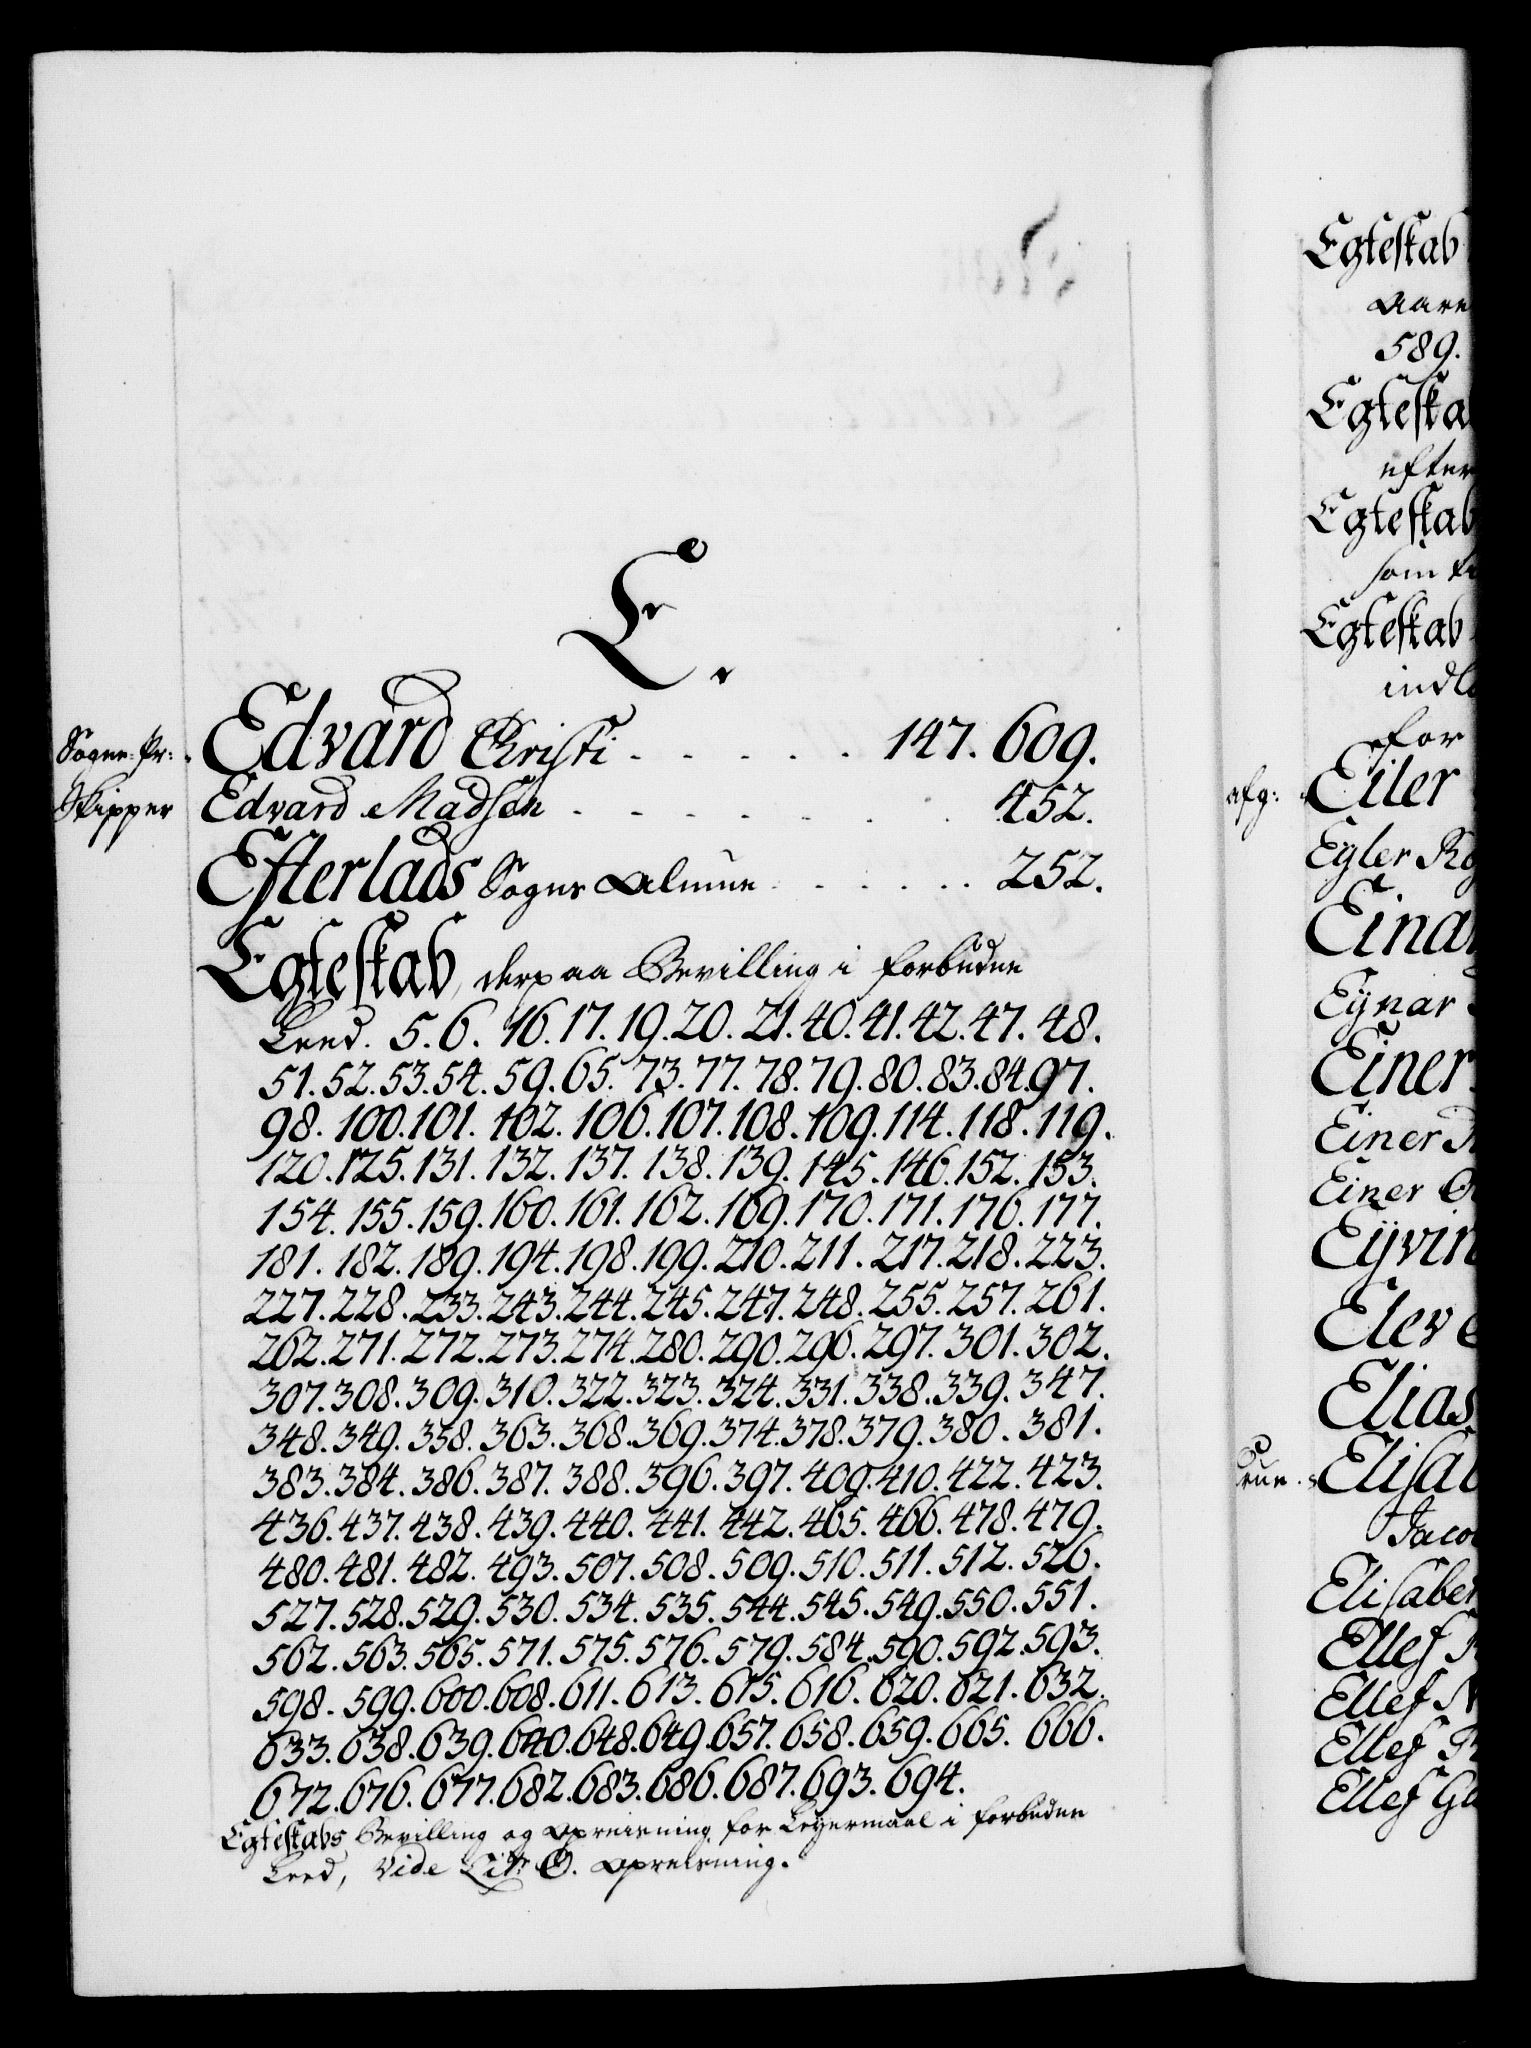 E.
Sogne-Pr: Edvard Christi - - - - - 147. 609.
Skipper Edvard Madsen - - - - - - - 452.
Efterlads Sogns Almue - - - - - 252.
Egteskab, derpaa Bevilling i forbudne
Leed. 5. 6. 16. 17. 19. 20. 21. 40. 41. 42. 47. 48.
51. 52. 53. 54. 59. 65. 73. 77. 78. 79. 80. 83. 84. 97.
98. 100. 101. 102. 106. 107. 108. 109. 114. 118. 119.
120. 125. 131. 132. 137. 138. 139. 145. 146. 152. 153.
154. 155. 159. 160. 161. 162. 169. 170. 171. 176. 177.
181. 182. 189. 194. 198. 199. 210. 211. 217. 218. 223.
227. 228. 233. 243. 244. 245. 247. 248. 255. 257. 261.
262. 271. 272. 273. 274. 280. 290. 296. 297. 301. 302.
307. 308. 309. 310. 322. 323. 324. 331. 338. 339. 347.
348. 349. 358. 363. 368. 369. 374. 378. 379. 380. 381.
383. 384. 386. 387. 388. 396. 397. 409. 410. 422. 423.
436. 437. 438. 439. 440. 441. 442. 465. 466. 478. 479.
480. 481. 482. 493. 507. 508. 509. 510. 511. 512. 526.
527. 528. 529. 530. 534. 535. 544. 545. 549. 550. 551.
562. 563. 565. 571. 575. 576. 579. 584. 590. 592. 593.
598. 599. 600. 608. 611. 613. 615. 616. 620. 621. 632.
633. 638. 639. 640. 648. 649. 657. 658. 659. 665. 666.
672. 676. 677. 682. 683. 686. 687. 693. 694.
Egteskabs Bevilling og Opreisning for Leyermaal i forbudne
Leed, vide Litr O. Opreisning.
Egteskab
Aare
589.
Egteska
efter
Egteskab
som
Egteskab
indl
for
afg: Eiler
Egler
Einar
Eynar
Einer
Einer
Einer
Eyvin
Elev
Elias
Elisab
Jaco
Elisabe
Ellef
Ellef
Ellef
Ellef